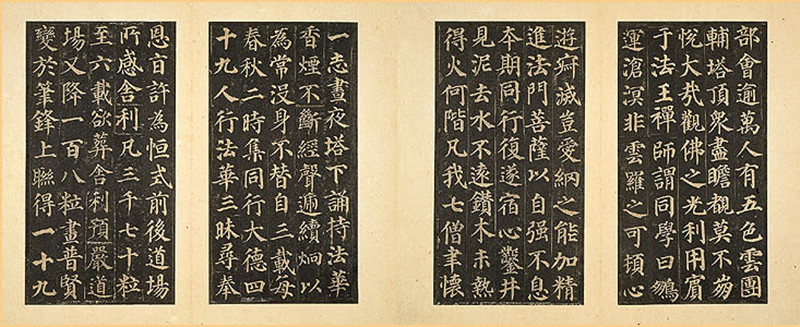 部會逾萬人有五色雲團
輔塔頂眾盡瞻覩莫不崩
悅大哉觀佛之光利用賓
于法王禪師謂同學曰鵬
運滄溟非雲羅之可頓心
遊寂滅豈愛網之能加精
進法門菩薩以自強不息
本期同行復遂宿心鑿井
見泥去水不遠鑽木未熱
得火何階凡我七僧聿懷
一志晝夜塔下誦持法華
香煙不斷經聲遞續炯以
為常沒身不替自三載每
春秋二時集同行大德四
十九人行法華三昧尋奉
恩旨許為恒式前後道場
所感舍利凡三千七十粒
至六載欲葬舍利預嚴道
場又降一百八粒畫普賢
變於筆鋒上聯得一十九